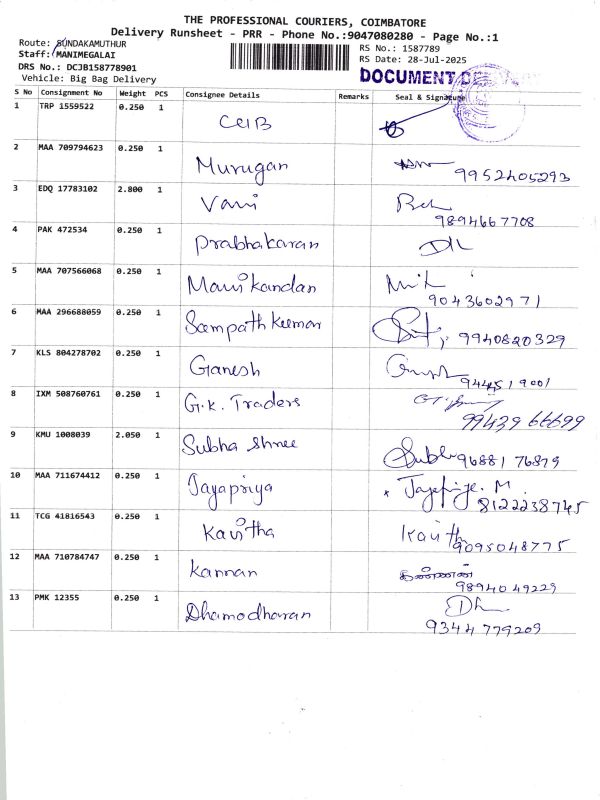 THE PROFESSIONAL COURIERS, COIMBATORE
Delivery Runsheet - PRR - Phone No.:9047080280 - Page No.:1
Route: SUNDAKAMUTHUR
RS No.: 1587789
Staff: MANIMEGALAI
RS Date: 28-Jul-2025
DRS No.: DCJB158778901
DOCUMENT
Vehicle: Big Bag Delivery
S No Consignment No Weight PCS Consignee Details Remarks Seal & Signature
1 TRP 1559522 0.250 1 CCIB
2 MAA 709794623 0.250 1 Murugan 9952405293
3 EDQ 17783102 2.800 1 Vani 9894667708
4 PAK 472534 0.250 1 Prabhakaran
5 MAA 707566068 0.250 1 Manikandan 9043602971
6 MAA 296688059 0.250 1 Sampath Kumar 9940820329
7 KLS 804278702 0.250 1 Ganesh 944519001
8 IXM 508760761 0.250 1 G.K. Traders 9943966699
9 KMU 1008039 2.050 1 Subha Shree 9688176879
10 MAA 711674412 0.250 1 Jayapriya Jayapriya. M 8122238745
11 TCG 41816543 0.250 1 Kavitha Kavith 9095048775
12 MAA 710784747 0.250 1 Kannan கண்ணன் 9894049229
13 PMK 12355 0.250 1 Dhamodharan 9344779209